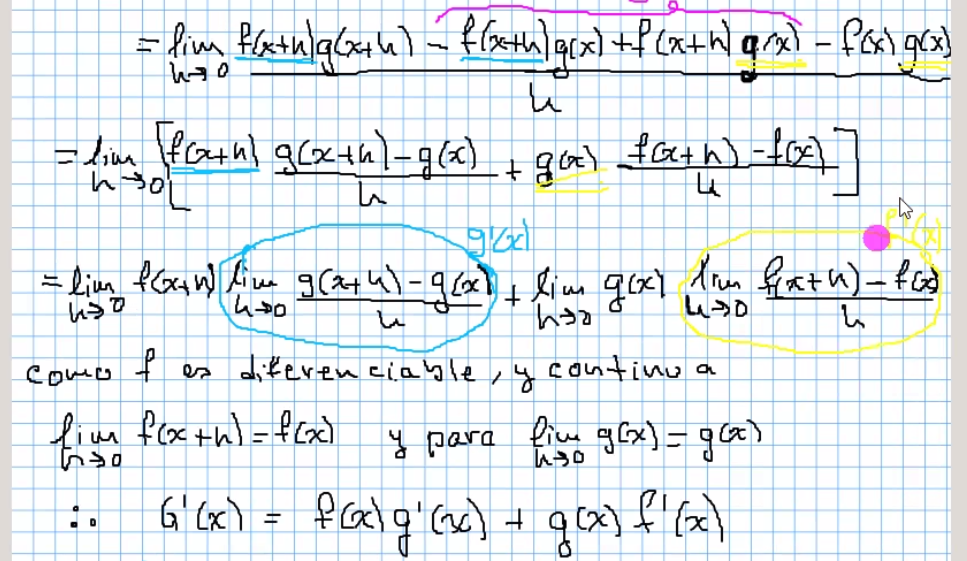 = lim h→0 f(x+h)g(x+h) - f(x+h)g(x) + f(x+h)g(x) - f(x)g(x) / h
= lim h→0 [ f(x+h) g(x+h) - g(x) / h + g(x) f(x+h) - f(x) / h ]
g'(x) f'(x)
= lim h→0 f(x+h) lim h→0 g(x+h) - g(x) / h + lim h→0 g(x) lim h→0 f(x+h) - f(x) / h
como f es diferenciable, y continua
lim h→0 f(x+h) = f(x) y para lim h→0 g(x) = g(x)
∴ G'(x) = f(x)g'(x) + g(x)f'(x)